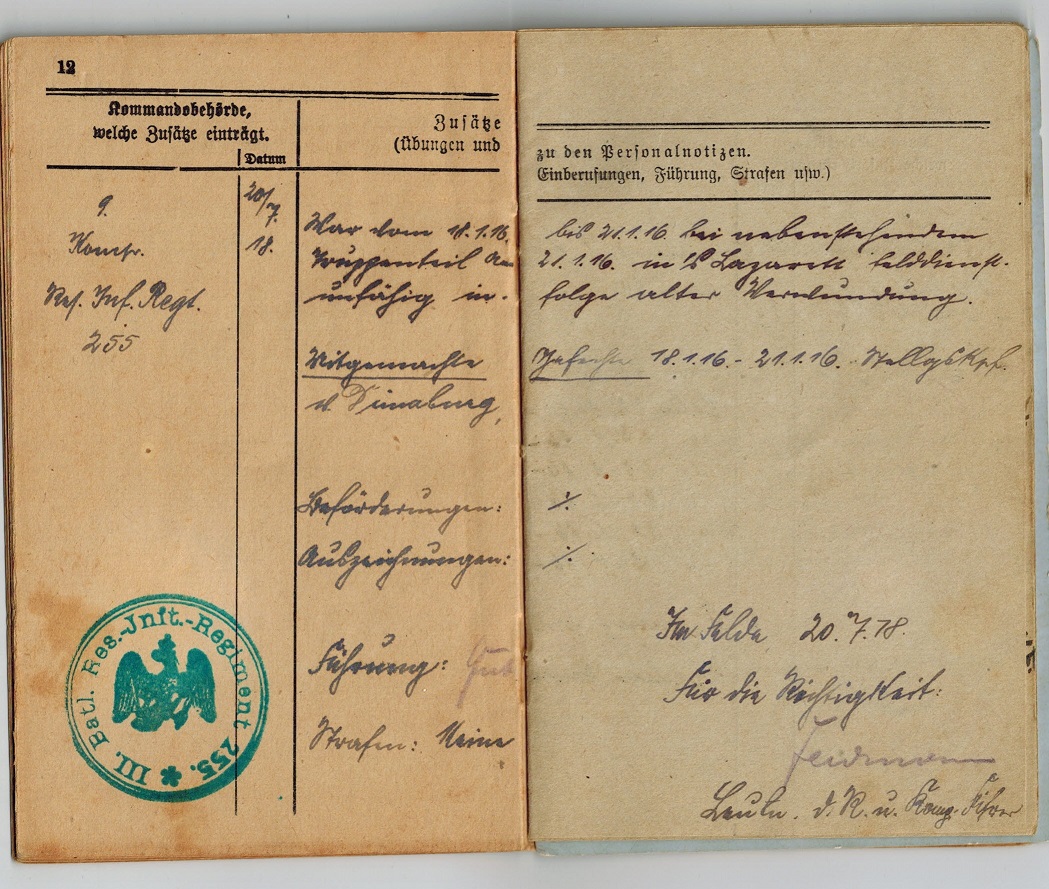 12
Kommandobehörde,
welche Zusätze einträgt.
Datum
Zusätze
(Übungen und
zu den Personalnotizen.
Einberufungen, Führung, Strafen usw.)
9.
Komp.
Res. Inf. Regt.
255
20/7.
18.
War vom 18.1.16. bis 21.1.16. bei nebenstehendem
Truppenteil 21.1.16. in Lazarett felddienst-
unfähig in- folge alter Verwundung.
Mitgemachte Gefechte 18.1.16 - 21.1.16. Stellgskpf.
v. Dünaburg,
Beförderungen: ·/.
Auszeichnungen: ·/.
Führung: Gut
Strafen: Keine
Im Felde 20.7.18.
Für die Richtigkeit:
Leutn. d. R. u. Komp. Führer
III. Batl. Res.-Inft.-Regiment 255.